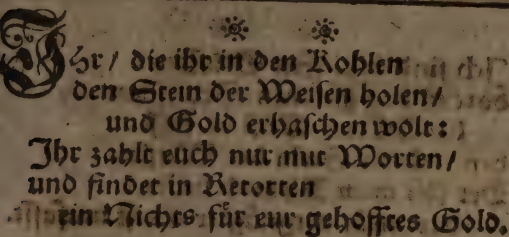 Ihr / die ihr in den Kohlen
den Stein der Weisen holen /
und Gold erhaschen wolt :
Ihr zahlt euch nur mit Worten /
und findet in Retorten
ein Nichts für eur gehofftes Gold.